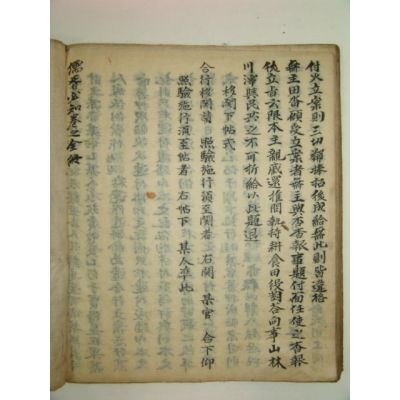 付火立案則三切鄰捧招後成給無此則皆違格
無主田畓願受立案者無主與否香報事題付而任使之香報
後立旨六限本主親戚還推間執持耕食田役對答向事山林
川澤與民共之不可折給以此題退
移關下帖式
合行移關請 照驗施行須至關者 右關 某官 合下仰
照驗施行須至帖者 右帖下 某人準此
儒胥必知卷之全終